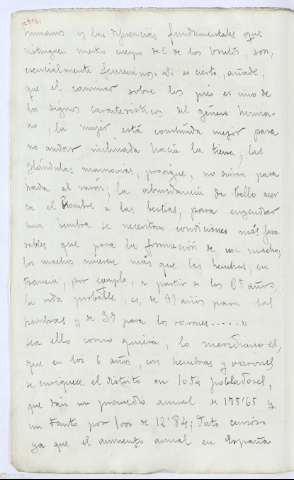 humanos y las diferencias fundamentales que
distinguen nuestro cuerpo del de los brutos, son,
esencialmente femeninos; así es cierto, añade,
que el caminar sobre los pies es uno de
los signos característicos del género huma-
no, la mujer está construida mejor para
no andar inclinada hacia la tierra; las
glándulas mamarias, prosigue, no sirven para
nada al varon; la abundancia de bello acer-
ca el hombre a las bestias; para engendrar
una hembra se necesitan condiciones más favo-
rables que para la formación de un macho;
los machos mueren más que las hembras, en
Francia, por ejemplo, a partir de los 6 años,
la vida probable, es, de 41 años para las
hembras y de 39 para los varones......
sea ello como quiera, lo meridiano es,
que en los 6 años, con hembras y varones,
se enriqueció el distrito en 1054 pobladores,
que dan un promedio anual de 175'65 y
un tanto por 1000 de 12'84; tanto curioso
ya que el aumento anual en España